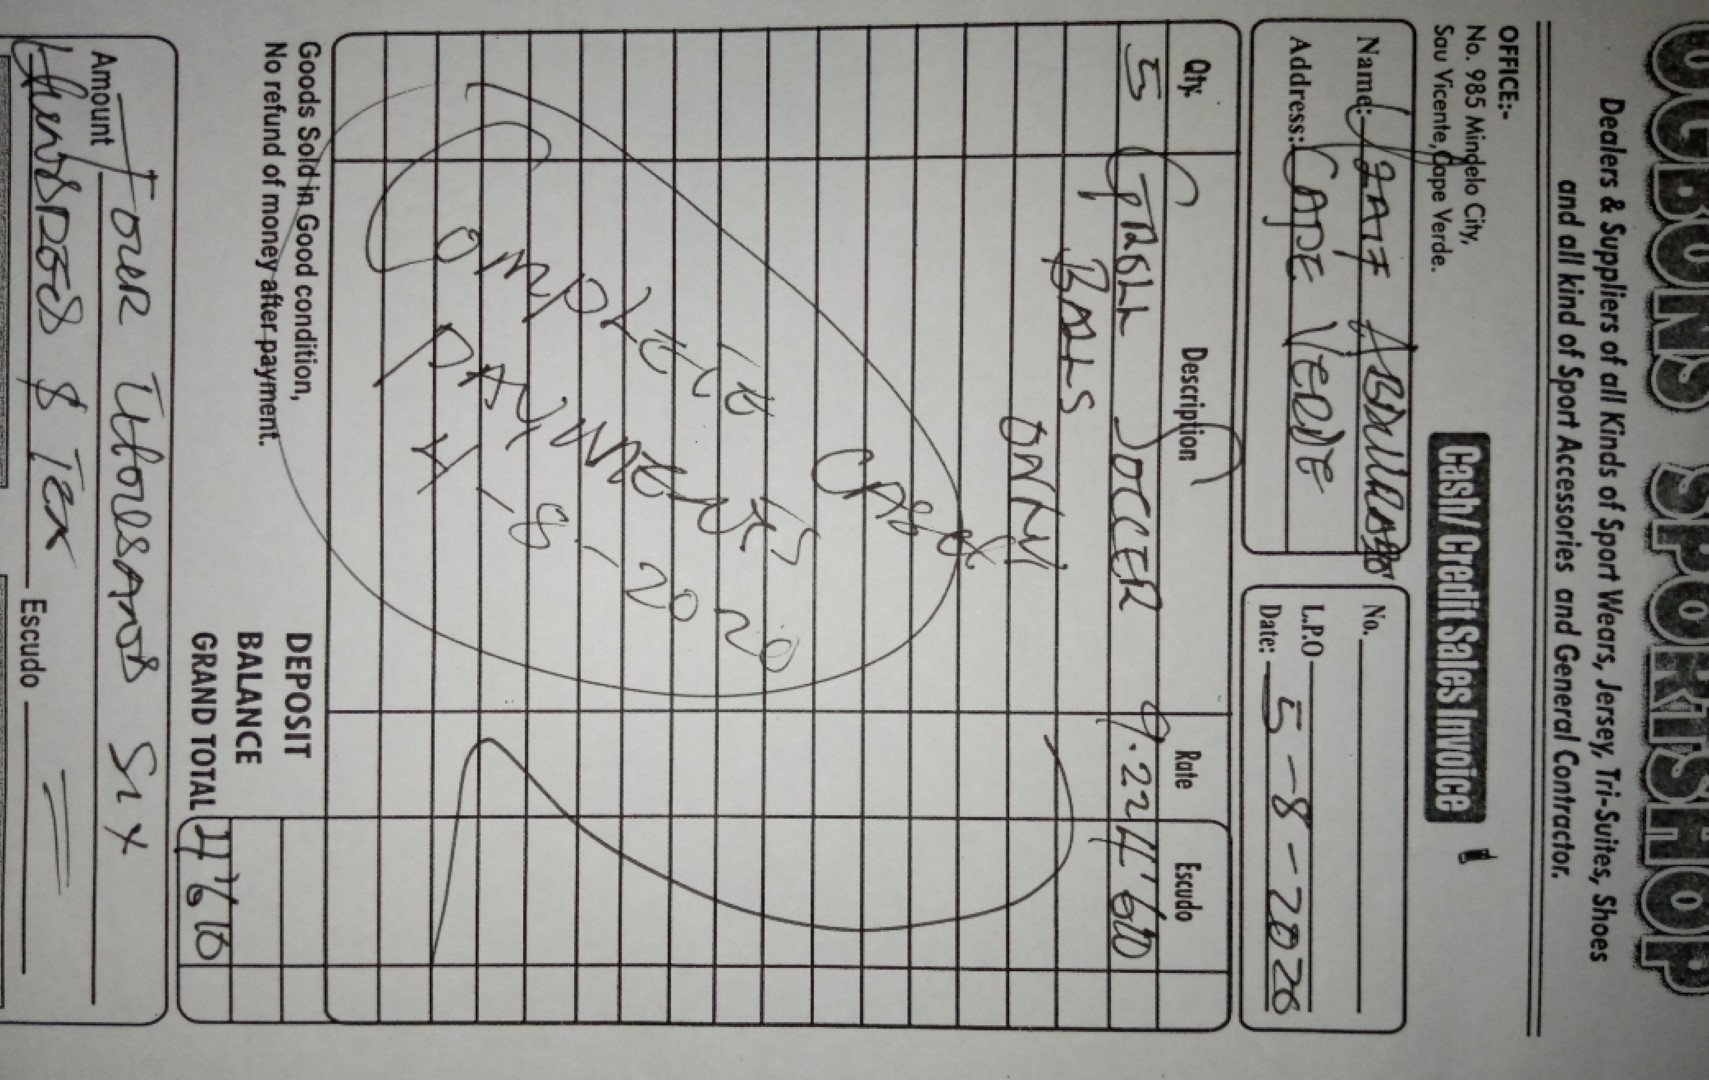 UCBONS SPORTSHOP
Dealers & Suppliers of all Kinds of Sport Wears, Jersey, Tri-Suites, Shoes
and all kind of Sport Accessories and General Contractor.
OFFICE:-
No. 985 Mindelo City,
Sau Vicente, Cape Verde.
Cash/Credit Sales Invoice
Name:
Address: CAPE VERDE
No.
L.P.O
Date: 5-8-2020
Qty. Description Rate Escudo
5 SOCCER 4'610
BALLS
ONLY
CASH
COMPLETE
PAYMENT
-8-2020
Goods Sold in Good condition,
No refund of money after payment.
DEPOSIT
BALANCE
GRAND TOTAL 4'610
Amount Four Thousand Six
Hundred & Ten Escudo